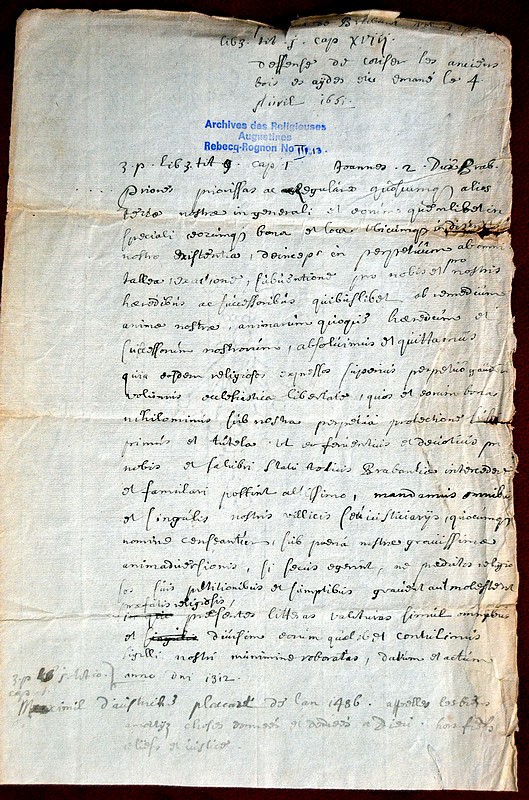 Brabant
lib 3. tit j. cap XVIIj.
deffense de cotiser les anciens
bois es aydes etc emané le 4
Avril 165.
Archives des Religieuses
Augustines
Rebecq-Rognon No III,13
3. p. lib 3. tit 9 cap 1 Joannes. 2. Dux Brab.
Priores priorissas ac Regulares quoscumq alios
terre nostre in generali et eorum quemlibet in
speciali eorumq bona et loca
nostro existentia, deinceps in perpetuum ab omni
tallea, exactione, subventione pro nobis et pro nostris
haeredibus ac successoribus quibuslibet ob remedium
anime nostre, animarum quoque haeredum et
successorum nostrorum, absolvimus et quittamus
quia eosdem religiosos expressos superius perpetuo gaudere
volumus ecclesiastica libertate, quos et eorum bona
nihilominus sub nostra perpetua protectione
et tutela. Ut eo ferventius et devotius pro
nobis et salubri statu totius Brabantie intercedere
et familiari possint altissimo, mandamus omnibus
et singulis nostris villicis seu iusticiarijs, quocumq
nomine censeantur, sub poena nostre gravissime
animadversionis, si secus egerint, ne predictos religio
sos suis petitionibus et sumptibus gravent aut molestent
prefatis religiosis,
presentes litteras valituras simul omnibus
et singulis divisim eorum quolibet contulimus
sigilli nostri munimine roboratas, datum et actum
anno dni 1312.
3. p.
cap
Maximil d'austriche placart de lan 1486. appelles les biens
amortiz choses donnees et dediees a Dieu. hors fiefs
reliefs et justice.